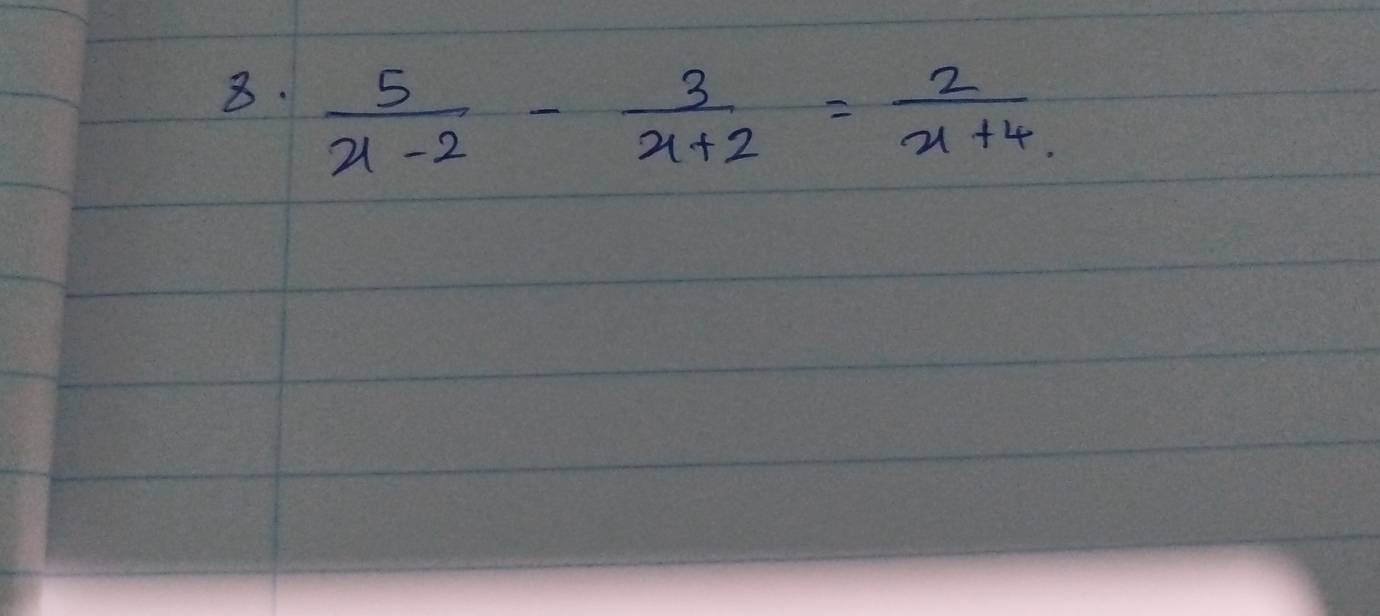 8. 5/(x-2) - 3/(x+2) = 2/(x+4).